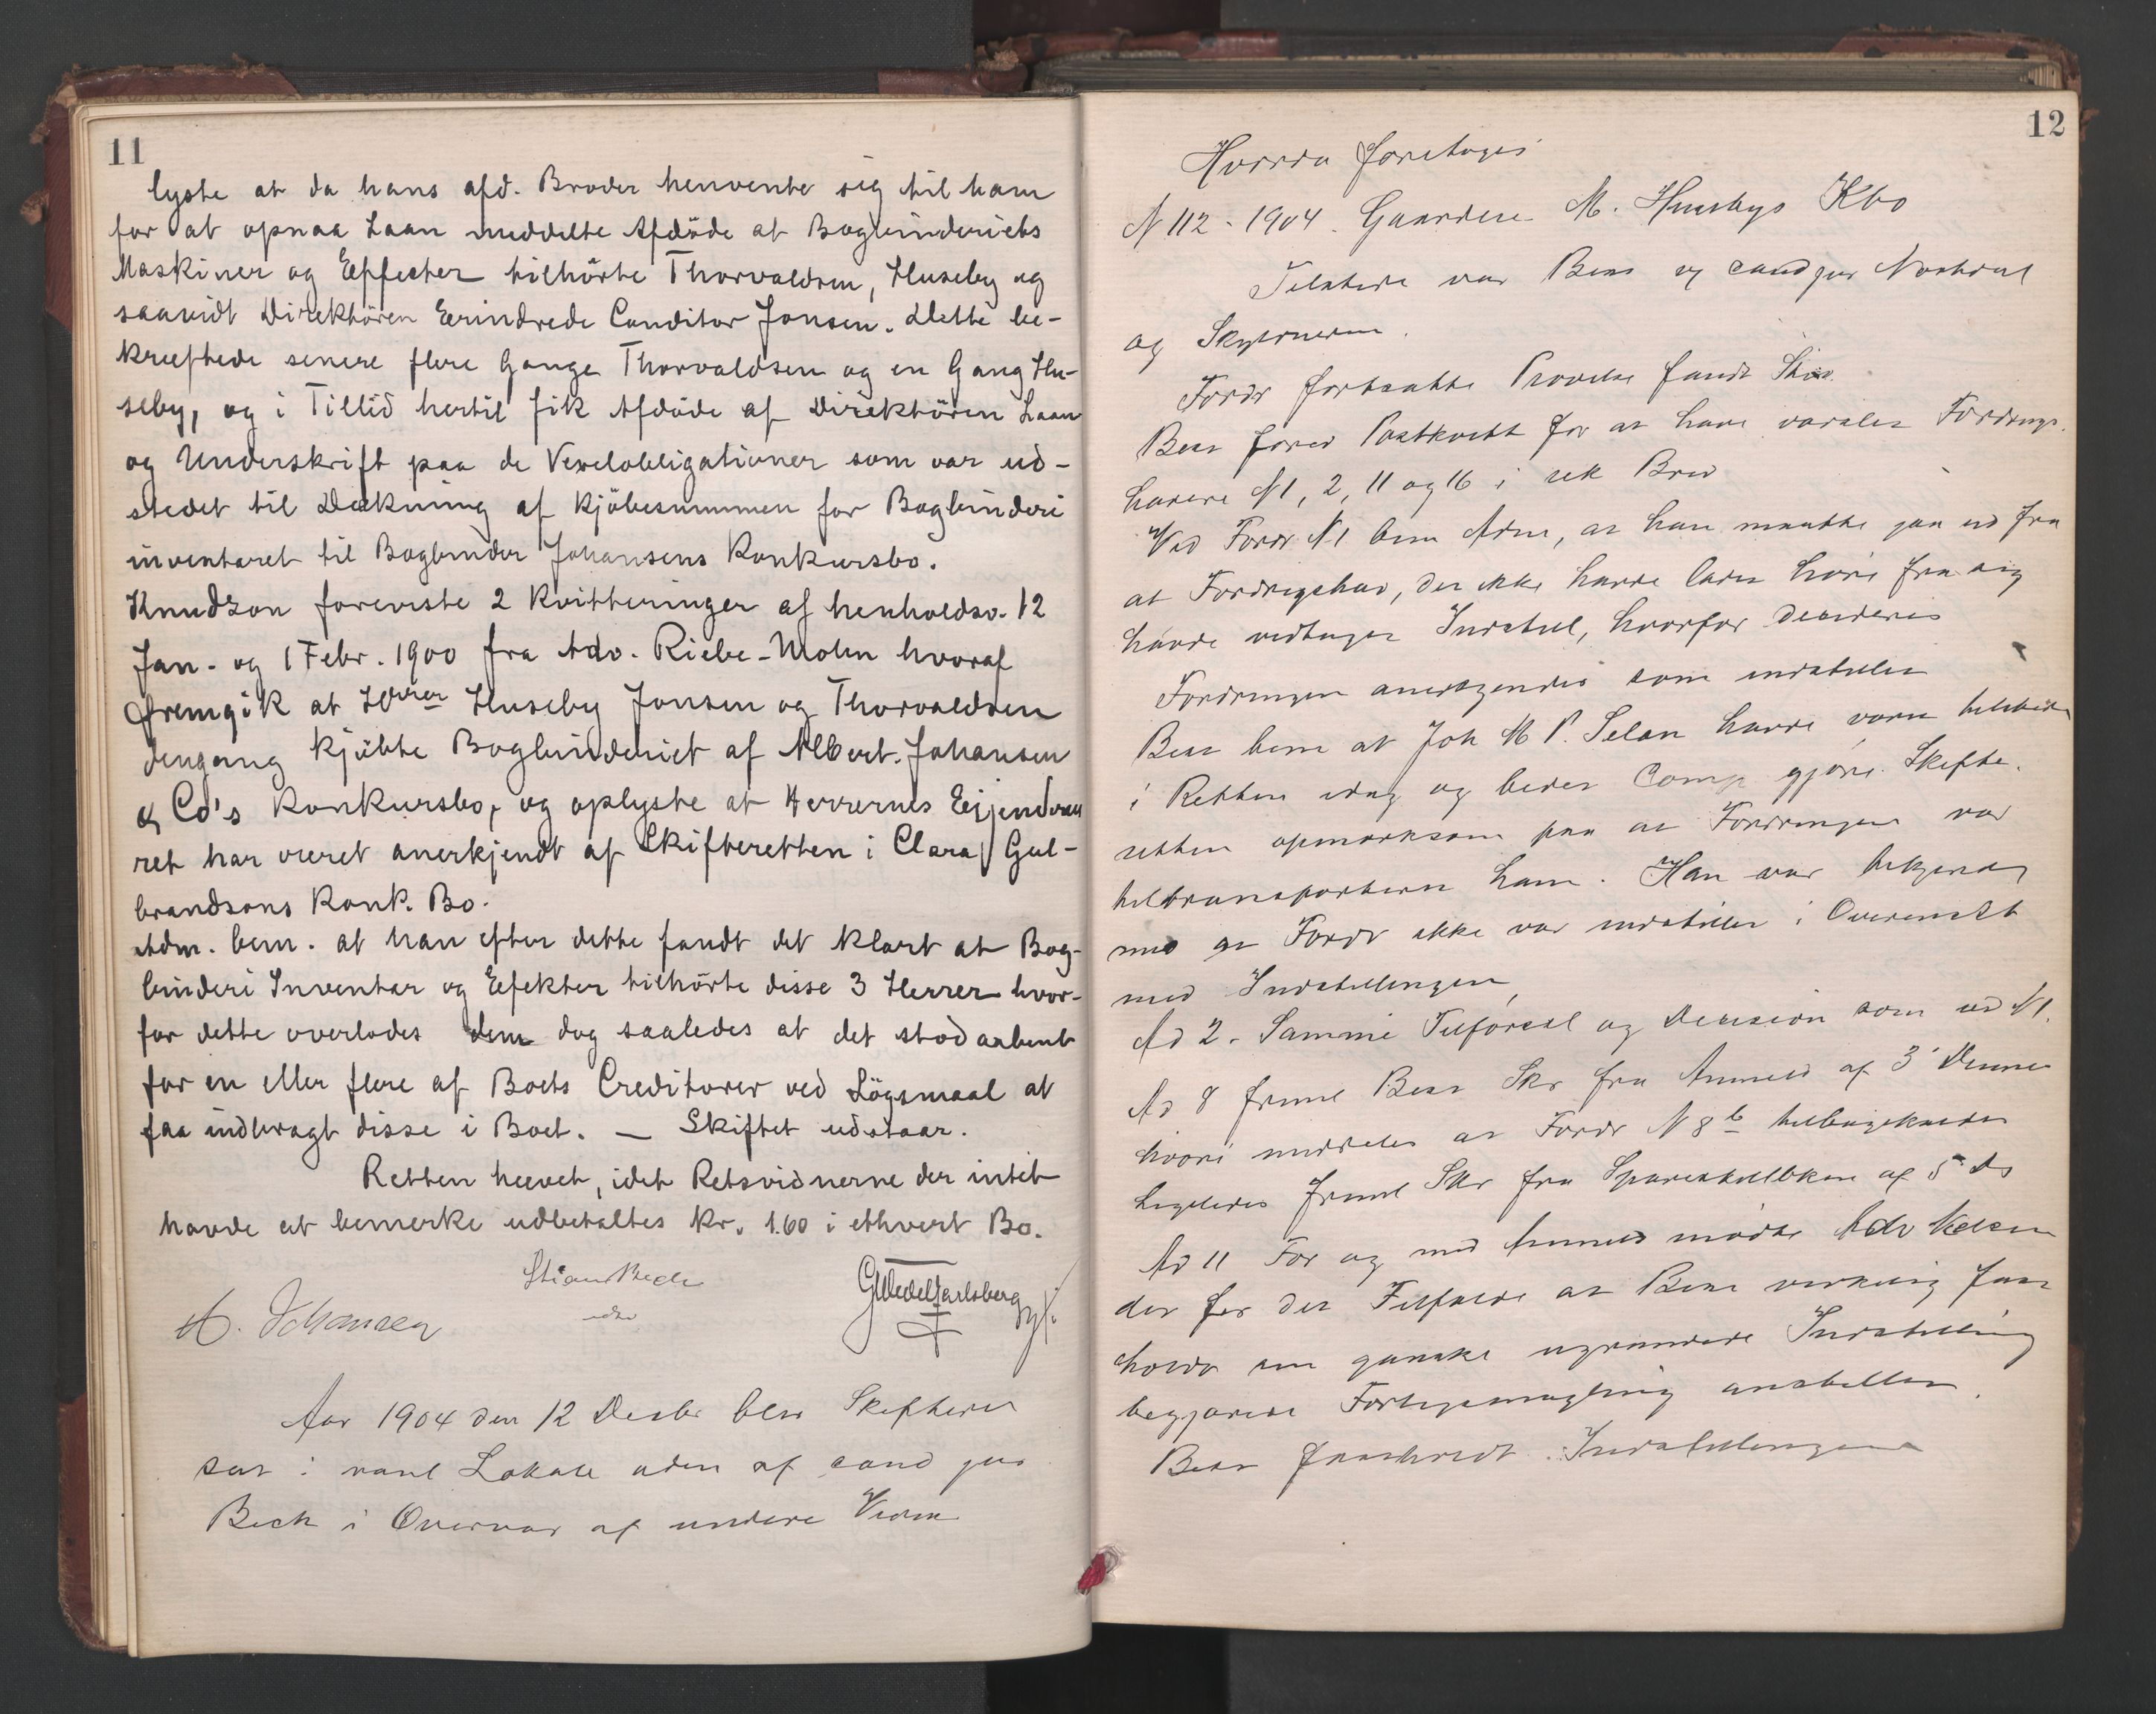 11
lyste at da hans afd. Broder henvente sig til ham
for at opnaa Laan meddelte Afdöde at Bogbinderiets
Maskiner og Effecter tilhörte Thorvaldsen, Huseby og
saavidt Direktören Erindrede Conditor Jonsen. Dette be-
kræftede senere flere Gange Thorvaldsen og en Gang Hu-
seby, og i Tillid hertil fik Afdöde af Direktören Laan
og Underskrift paa de Vexelobligationer som var ud-
stedet til Dækning af Kjöbesummen for Bogbinderi
inventaret til Bogbinder Johansens Konkursbo.
Knudzon foreviste 2 Kvitteringer af henholdsv. 12
Jan. og 1 Febr. 1900 fra Adv. Riebe-Mohn hvoraf
fremgik at Hrrer Huseby Jonsen og Thorvaldsen
dengang kjöbte Bogbinderiet af Albert Johansen
& Co's Konkursbo, og oplyste at Herrernes Eijendoms
ret har været anerkjendt af Skifteretten i Clara Gul-
brandsons Konk. Bo.
Adm. bem. at han efter dette fandt det klart at Bog-
binderi Inventar og Efekter tilhörte disse 3 Herrer hvor-
for dette overlodes dem dog saaledes at det stod aabent
for en eller flere af Boets Creditorer ved Lögsmaal at
faa indbragt disse i Boet. — Skiftet udstaar.
Retten hævet, idet Retsvidnerne der intet
havde at bemerke udbetaltes Kr. 1.60 i ethvert Bo.
Stian Bech
A. Johansen
GWedelJarlsberg
Aar 1904 den 12 Decbr blev Skifteret
sat i vanl Lokale adm af cand jur
Beck i Overvær af undere Vidne
12
Hvorda foretoges
N 112 - 1904. Gaardeier M. Husebys Kbo
Tilstede var Best og cand jur
og Skyldneren.
Fordr fortsatte Prövelse fandt Sted.
Best forev Postkvitt for at have varslet Fordrings-
havere N 1, 2, 11 og 16 i rek Brev
Ved Fordr N 1 bem Adm, at han maatte gaa ud fra
at Fordringshav, der ikke havde ladet höre fra sig
havde vedtaget Indstil, hvorfor decideres
Fordringen anerkjendes som indstillet
Best bem at Joh M P. Selan havde været tilstede
i Retten idag og bedet Comp gjöre Skifte-
retten opmærksom paa at Fordringen var
tiltransporteret ham. Han var bekjendt
med at Fordr ikke var indstillet i Overensst
med Indstillingen
Ad 2. Samme Tilförsel og Decision som ved N 1.
Ad 8 freml Best Skr fra Anmeld af 3' Dennes
hvori meddeles at Fordr N 8b tilbagekaldes
Ligeledes freml Skr fra Sparesk af 5 ds
Ad 11 For og med Anmeld mödte Adv
der for det Tilfælde at Best virkelig fast
holdt sin ganske ugrundede Indstilling
begjærede Forligsmægling anstillet.
Best fastholdt Indstillingen